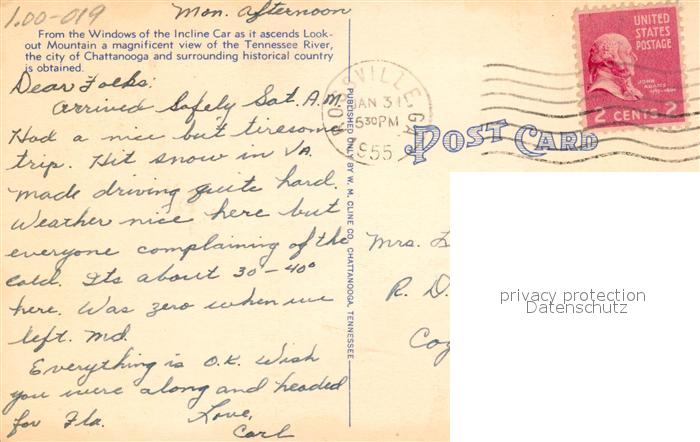 1.00-019
Mon. Afternoon
From the Windows of the Incline Car as it ascends Look-
out Mountain a magnificent view of the Tennessee River,
the city of Chattanooga and surrounding historical country
is obtained.
Dear Folks:
Arrived Safely Sat. A.M.
Had a nice but tiresome
trip. Hit snow in VA.
made driving quite hard.
Weather nice here but
everyone complaining of the
cold. Its about 30°-40°
here. Was zero when we
left. Md.
Everything is O.K. Wish
you were along and headed
for Fla.
Love,
Carl
PUBLISHED ONLY BY W. M. CLINE CO., CHATTANOOGA, TENNESSEE
SVILLE, GA
JAN 31
530 PM
1955
POST CARD
UNITED
STATES
POSTAGE
JOHN
ADAMS
2 CENTS 2
Mrs.
R. D.
privacy protection
Datenschutz